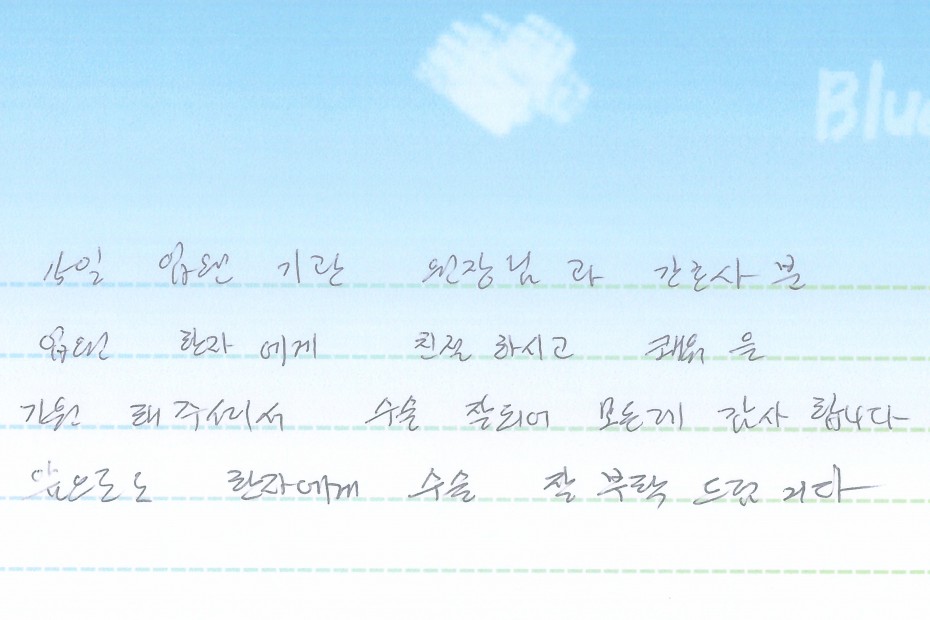 Blu
입원 기간 원장님 과 간호사 분
입원 환자 에게 친절 하시고 쾌유 을
기원 해 주셔서 수술 잘되어 모든게 감사 합니다
앞으로도 환자에게 수술 잘 부탁 드립니다